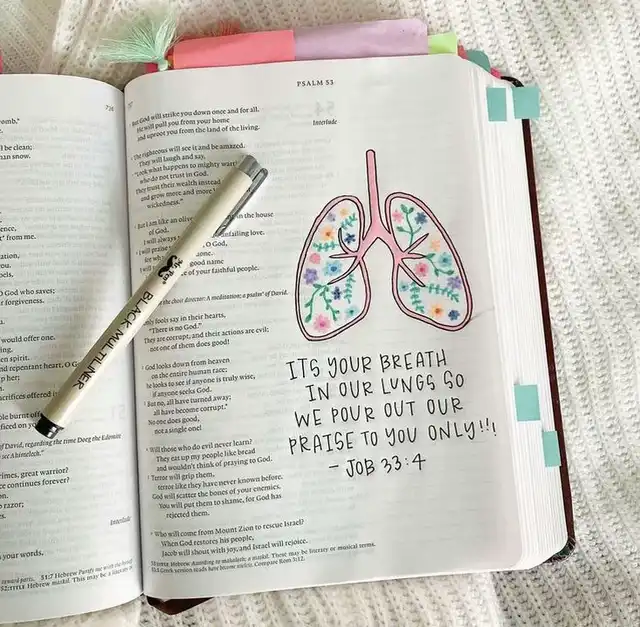 726
omb."
e.
l be clean;
han snow.
" from me.
O God who saves;
forgiveness.
would offer one.
ng.
en spirit.
nd repentant heart, O G
p her;
acrifices offered
ole burnt off
ficed on yo
of David, regarding the time Doeg the Edomite
imes, great warrior?
e continues forever?
n.
razor;
es.
Interlude
s your words.
51:7 Hebrew Purify me with the hyssop
52:TITLE Hebrew maskil. This may be a literary or
PSALM 53
But God will strike you down once and for all.
He will pull you from your home
and uproot you from the land of the living.
Interlude
The righteous will see it and be amazed.
They will laugh and say,
"Look what happens to mighty
who do not trust in God.
They trust their wealth instead
and grow more and more
wickedness."
But I am like an olive in the house
of God.
I will always unfailing love.
I will praise O God,
good name
of your faithful people.
the choir director: A meditation; a psalm of David.
Only fools say in their hearts,
"There is no God."
They are corrupt, and their actions are evil;
not one of them does good!
God looks down from heaven
on the entire human race;
he looks to see if anyone is truly wise,
if anyone seeks God.
But no, all have turned away;
all have become corrupt.
No one does good,
not a single one!
Will those who do evil never learn?
They eat up my people like bread
and wouldn't think of praying to God.
Terror will grip them,
terror like they have never known before.
God will scatter the bones of your enemies.
You will put them to shame, for God has
rejected them.
Who will come from Mount Zion to rescue Israel?
When God restores his people,
Jacob will shout with joy, and Israel will rejoice.
These may be literary or musical terms.
Greek version reads have become useless. Compare Rom 3:12.
BLACK MULTILINER
ITS YOUR BREATH
IN OUR LUNGS SO
WE POUR OUT OUR
PRAISE TO YOU ONLY!!!
- JOB 33:4